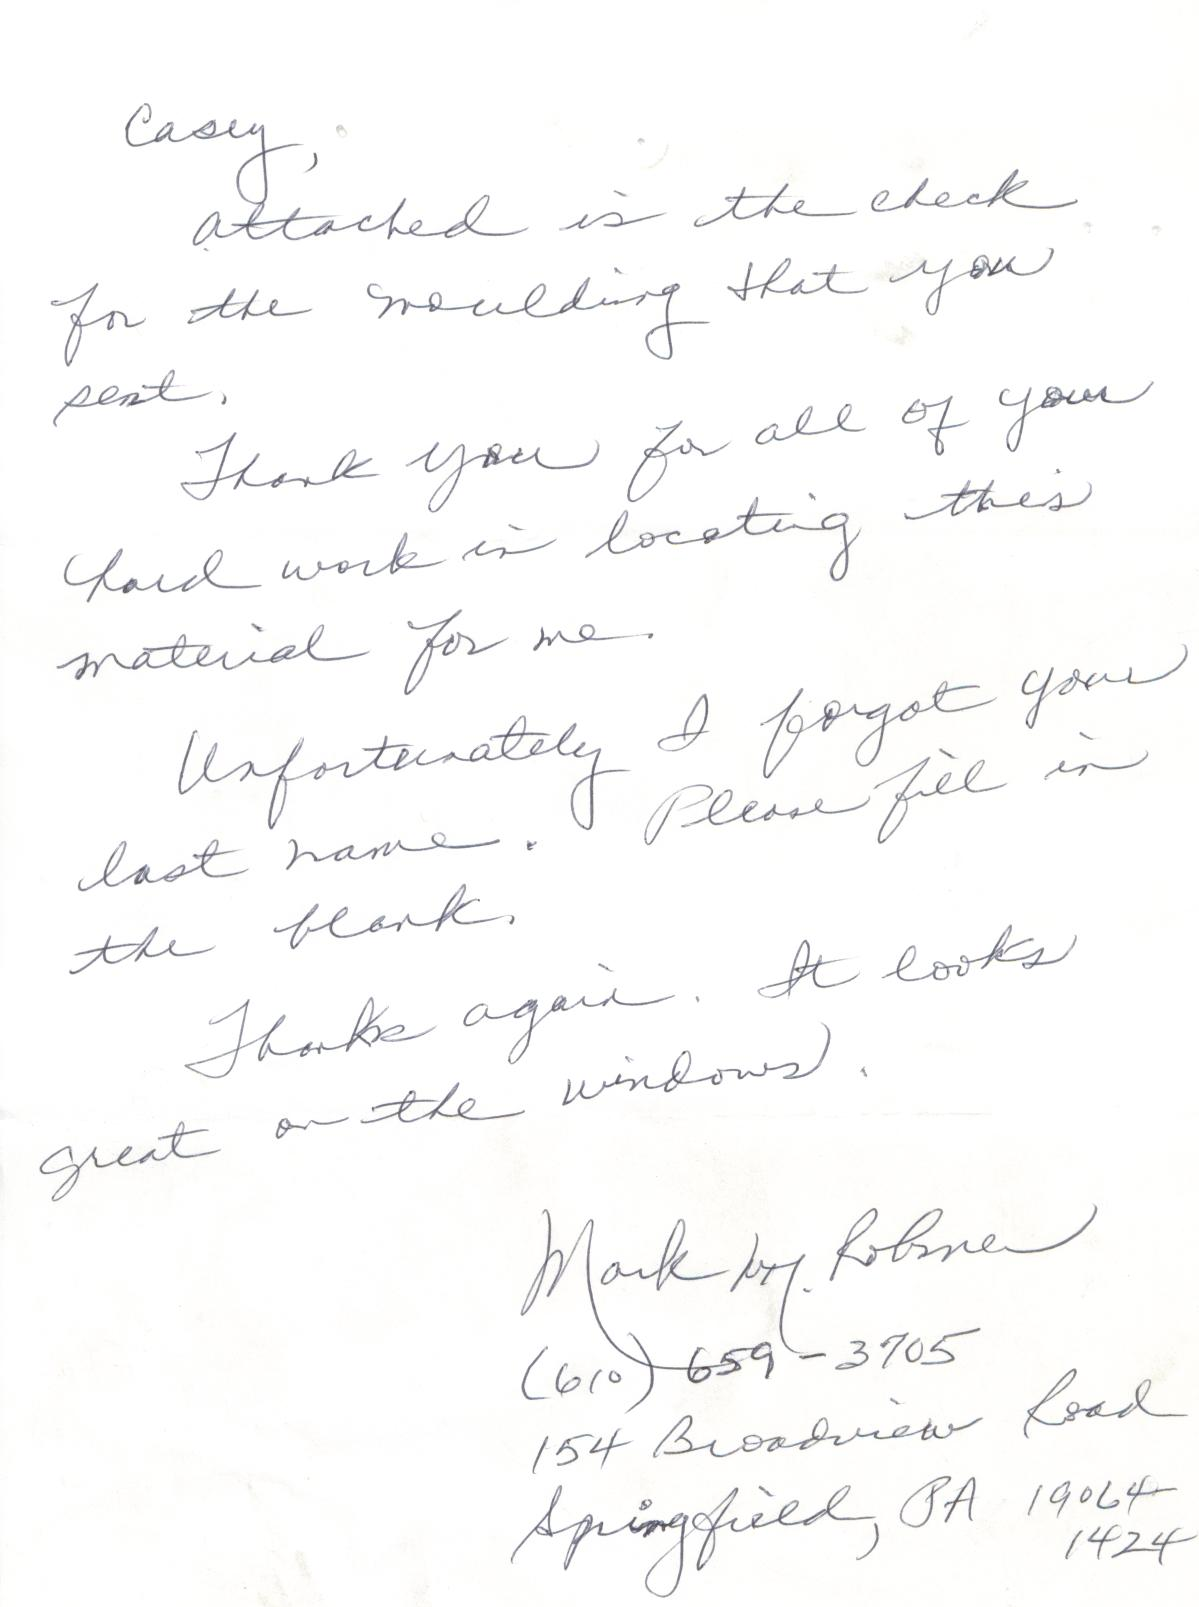 Casey,
Attached is the check
for the moulding that you
sent.
Thank you for all of your
hard work in locating this
material for me.
Unfortunately I forgot your
last name. Please fill in
the blank.
Thanks again. It looks
great on the windows.
Mark
(610) 659-3705
154 Broadview Road
Springfield, PA 19064-
1424